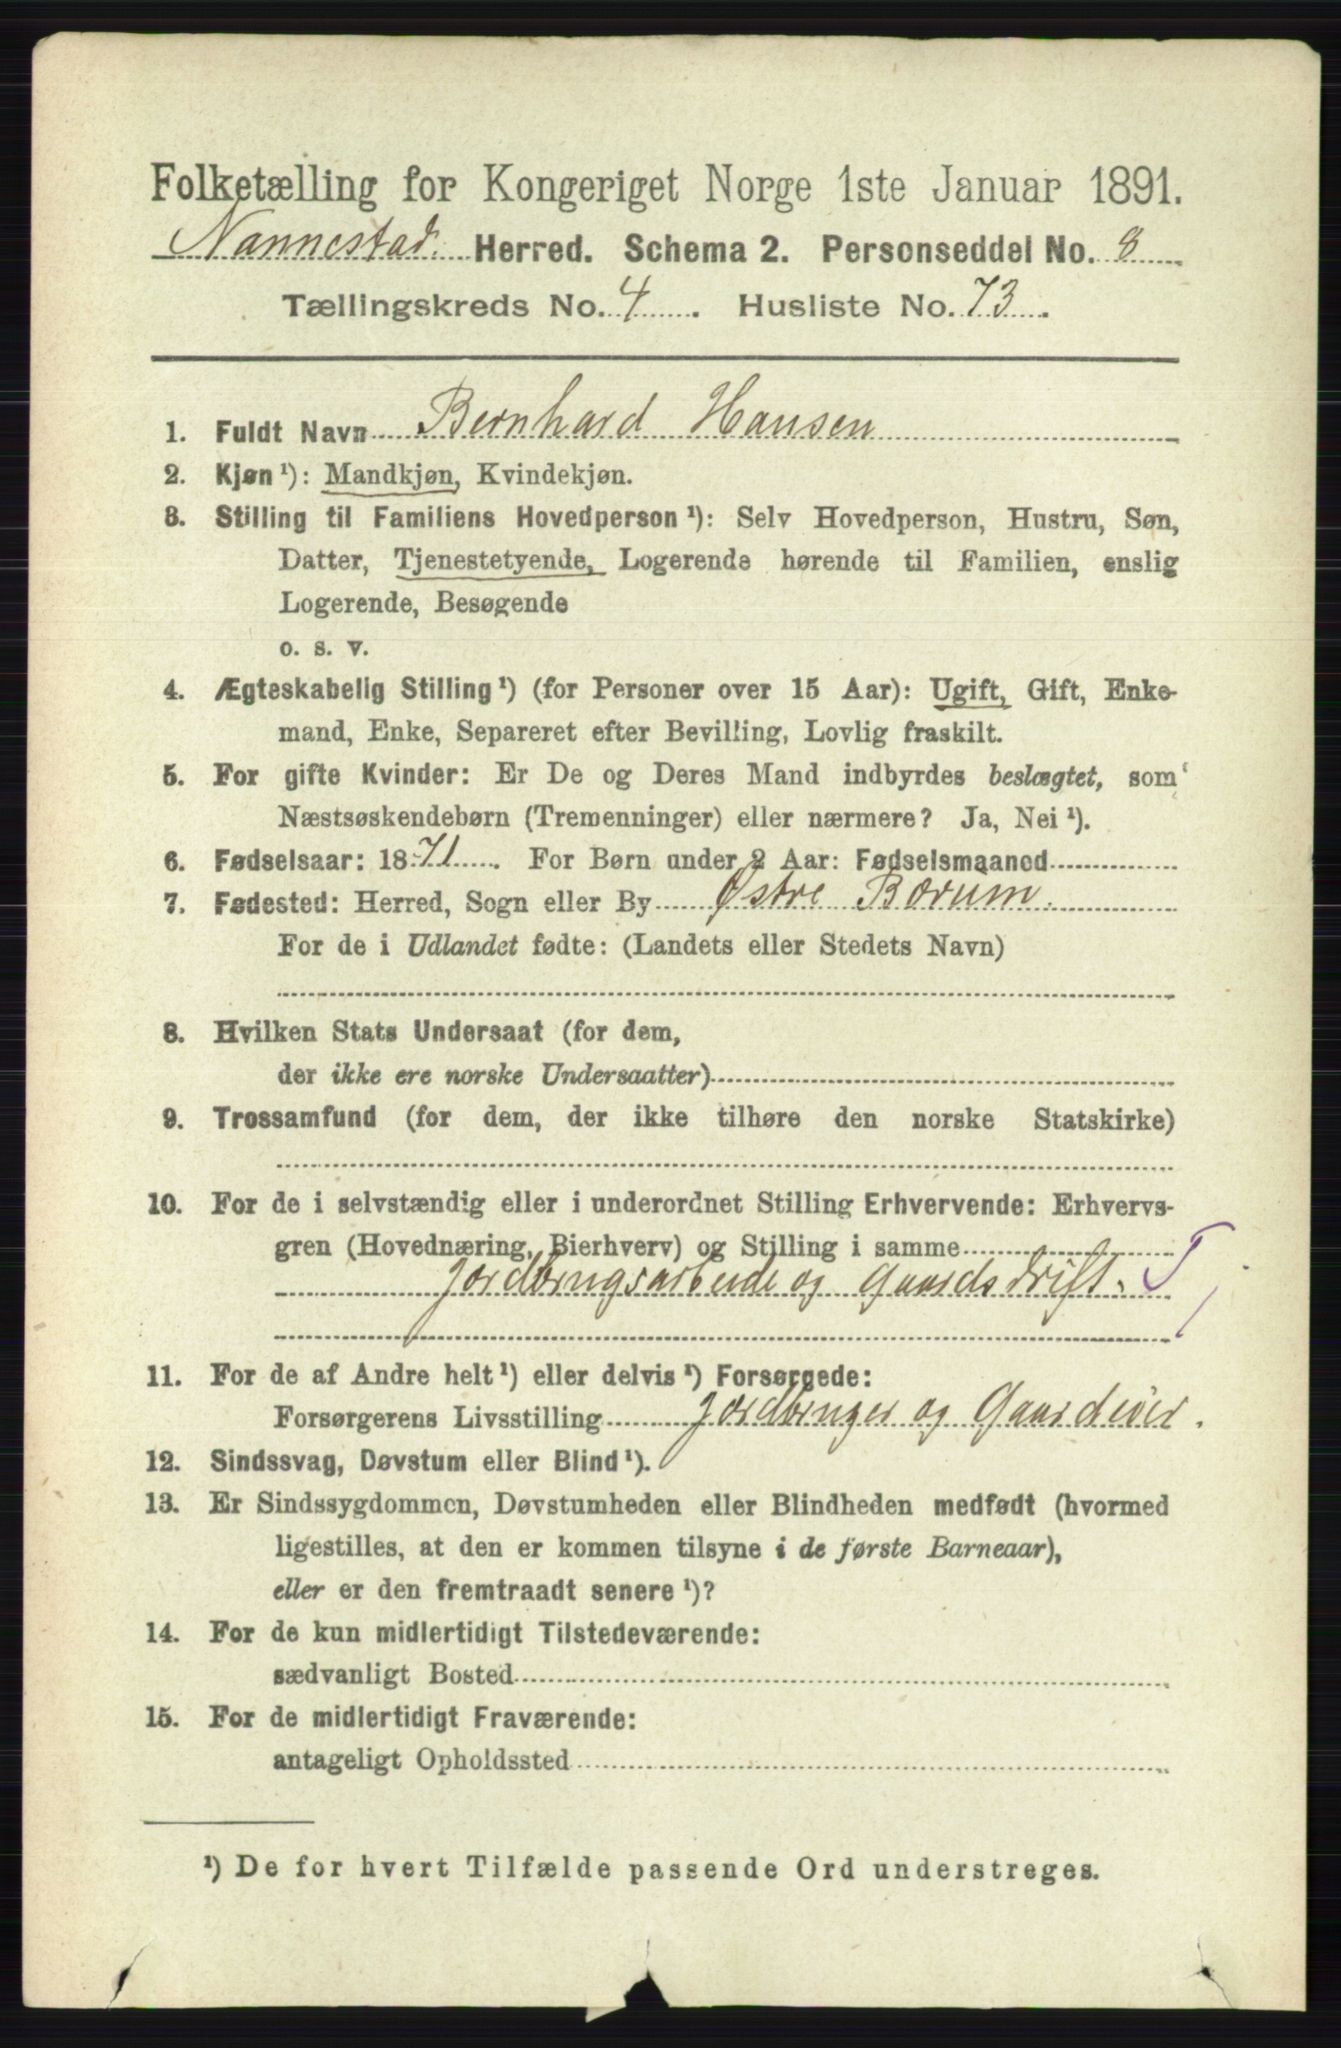 Folketælling for Kongeriget Norge 1ste Januar 1891.
Nannestad Herred. Schema 2. Personseddel No. 8
Tællingskreds No. 4. Husliste No. 73.
1. Fuldt Navn Bernhard Hansen
2. Kjøn ¹): Mandkjøn, Kvindekjøn.
3. Stilling til Familiens Hovedperson ¹): Selv Hovedperson, Hustru, Søn,
Datter, Tjenestetyende, Logerende hørende til Familien, enslig
Logerende, Besøgende
o. s. v.
4. Ægteskabelig Stilling ¹) (for Personer over 15 Aar): Ugift, Gift, Enke-
mand, Enke, Separeret efter Bevilling, Lovlig fraskilt.
5. For gifte Kvinder: Er De og Deres Mand indbyrdes beslægtet, som
Næstsøskendebørn (Tremenninger) eller nærmere? Ja, Nei ¹).
6. Fødselsaar: 1871. For Børn under 2 Aar: Fødselsmaaned
7. Fødested: Herred, Sogn eller By Østre Bærum.
For de i Udlandet fødte: (Landets eller Stedets Navn)
8. Hvilken Stats Undersaat (for dem,
der ikke ere norske Undersaatter)
9. Trossamfund (for dem, der ikke tilhøre den norske Statskirke)
10. For de i selvstændig eller i underordnet Stilling Erhvervende: Erhvervs-
gren (Hovednæring, Bierhverv) og Stilling i samme
Jordbrugsarbeide og Gaardsdrift. T
11. For de af Andre helt ¹) eller delvis ¹) Forsørgede:
Forsørgerens Livsstilling Jordbruger og Gaardeier.
12. Sindssvag, Døvstum eller Blind ¹).
13. Er Sindssygdommen, Døvstumheden eller Blindheden medfødt (hvormed
ligestilles, at den er kommen tilsyne i de første Barneaar),
eller er den fremtraadt senere ¹)?
14. For de kun midlertidigt Tilstedeværende:
sædvanligt Bosted
15. For de midlertidigt Fraværende:
antageligt Opholdssted
¹) De for hvert Tilfælde passende Ord understreges.